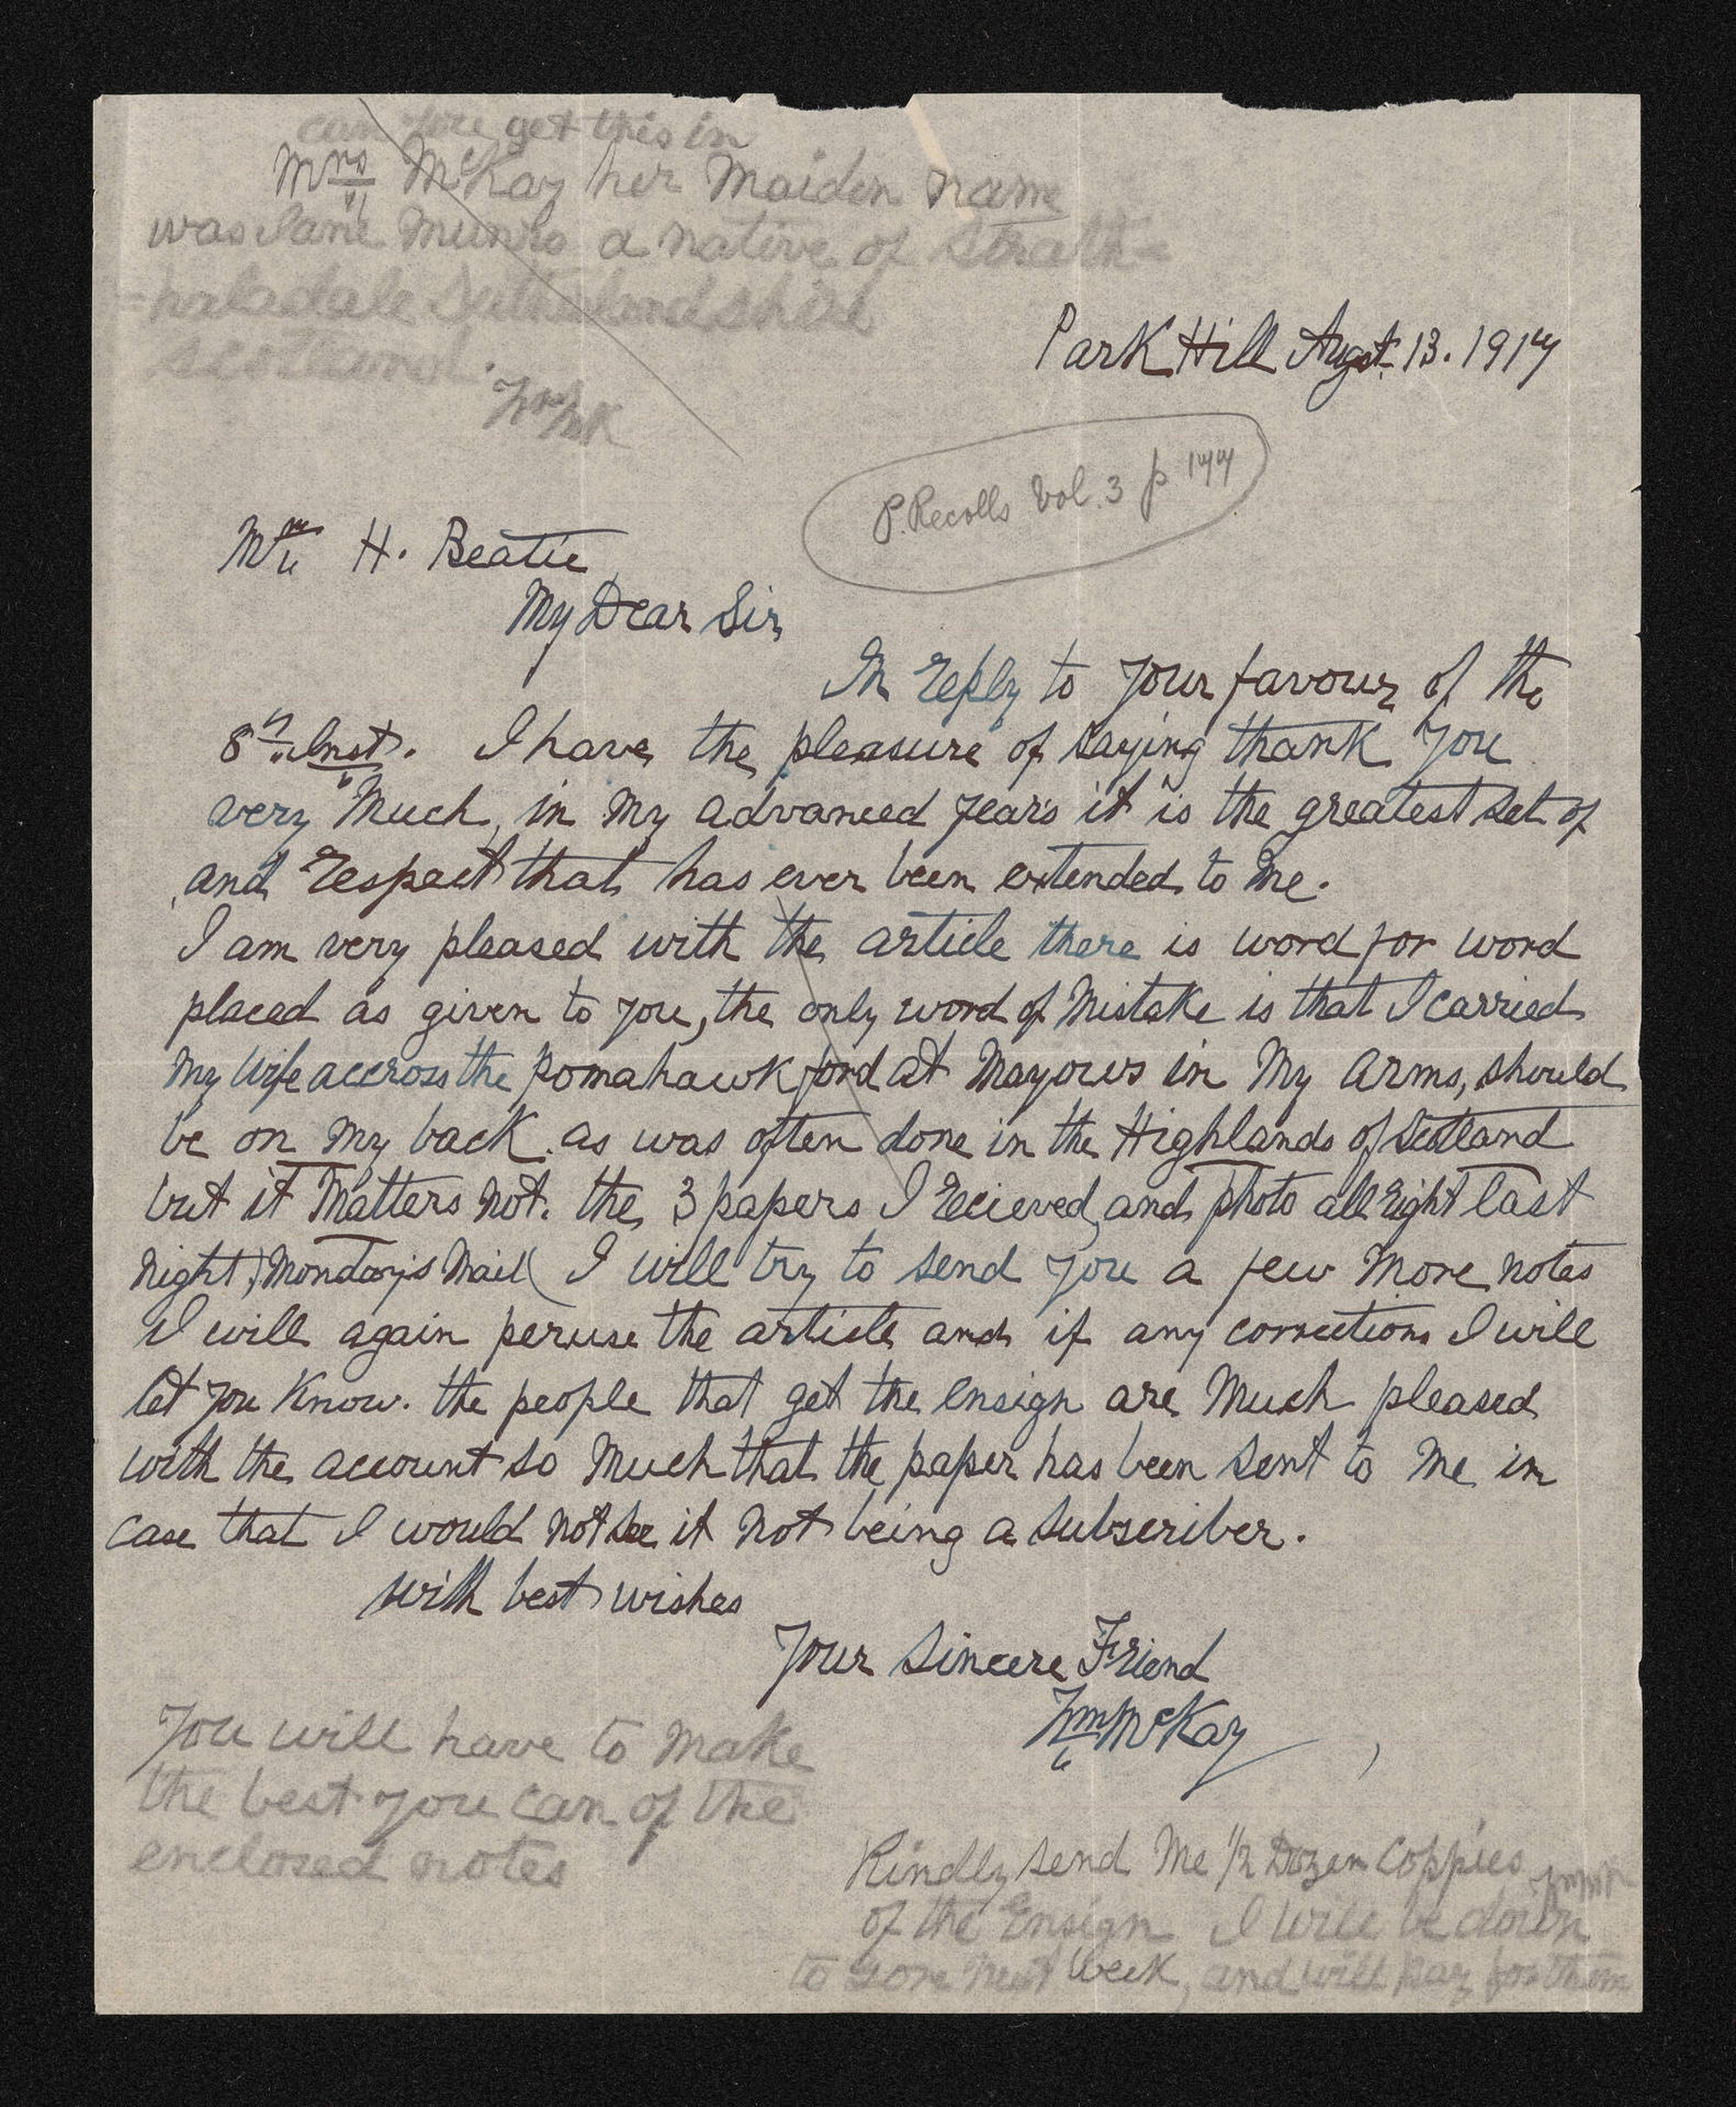 can you get this in
Mrs McKay her Maiden name
was Jane Munro a native of Strath-
-haladale Sutherlandshire
Scotland.
Wm McK
Park Hill Augst. 13. 1917
P. Recolls Vol. 3 p 177
Mr H. Beatie
My Dear Sir,
In reply to your favour of the
8th Inst. I have the pleasure of saying thank you
very Much, in My advanced years it is the greatest set of
and respect that has ever been extended to Me.
I am very pleased with the article there is word for word
placed as given to you, the only word of Mistake is that I carried
My Wife accross the pomahawk ford at Mayows in My arms, should
be on My back. as was often done in the Highlands of Scotland
but it Matters Not. the 3 papers I recieved, and photo all right last
Night, )Monday's Mail( I will try to send you a few More notes
I will again peruse the article and if any corrections I will
let you Know. the people that get the Ensign are Much pleased
with the account so Much that the paper has been sent to Me in
case that I would Not see it Not being a subscriber.
with best wishes
Your Sincere Friend
Wm McKay
You will have to Make
the best you can of the
enclosed notes
Kindly send Me 1/2 Dozen Coppies
of the Ensign I will be down
to Gore Next Week, and will pay for them